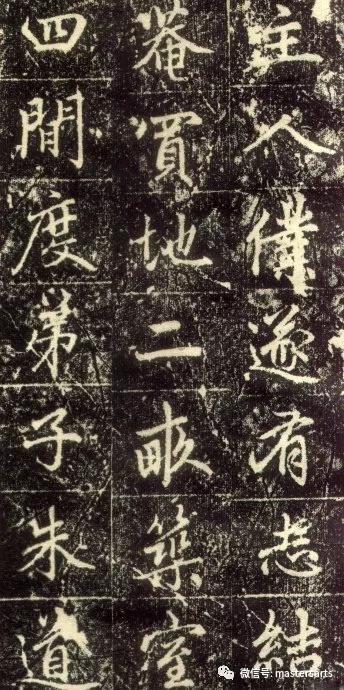 主人僕遂有志結
菴買地二畝築室
四間度弟子朱道
微信号: mastersarts